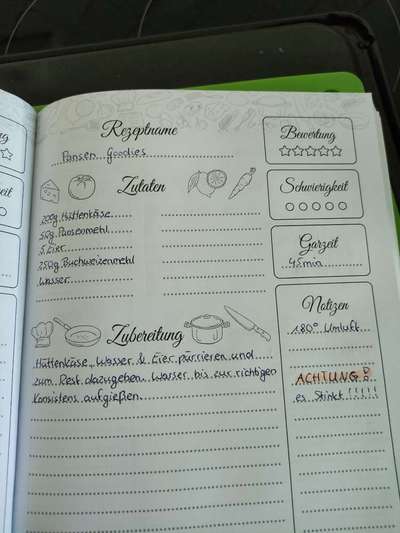 Rezeptname
Pansen Goodies
Zutaten
200g Hüttenkäse
50g Pansenmehl
5 Eier
250g Buchweizenmehl
Wasser
Zubereitung
Hüttenkäse, Wasser & Eier pürrieren und
zum Rest dazugeben. Wasser bis zur richtigen
Konsistens aufgießen.
Bewertung
Schwierigkeit
Garzeit
45min
Notizen
180° Umluft
ACHTUNG!
es Stinkt!!!!!